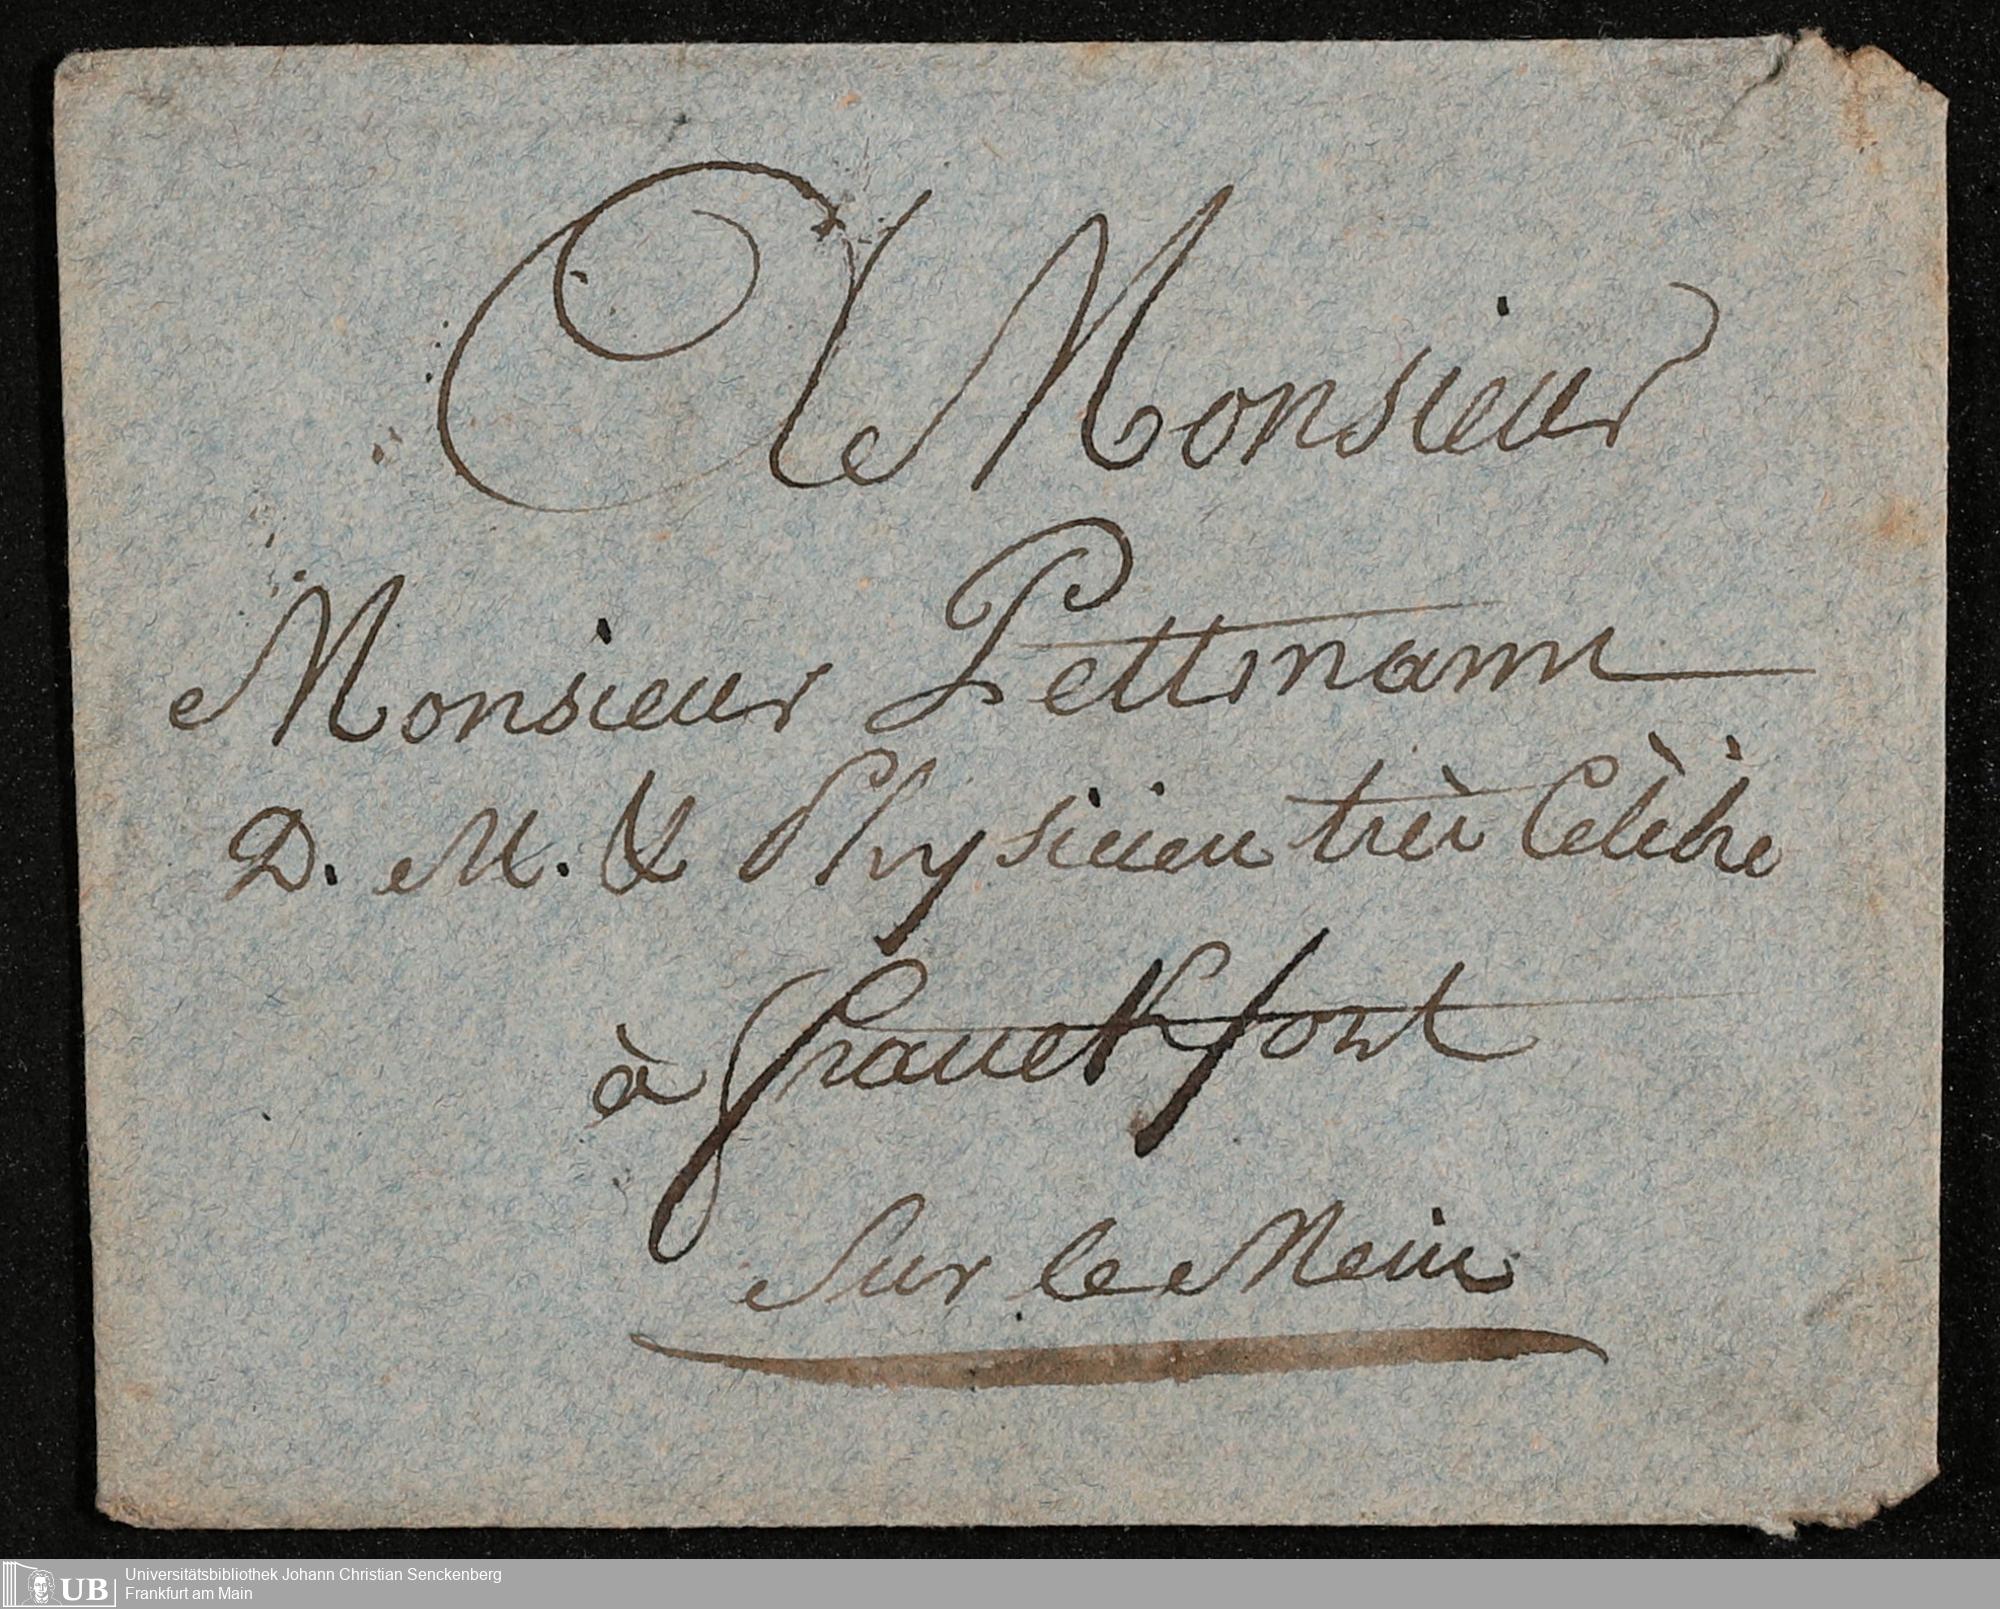 A Monsieur
Monsieur Pettmann
D. M. & Physicien très Célèbre
à Franckfort
Sur le Mein
UB
Universitätsbibliothek Johann Christian Senckenberg
Frankfurt am Main